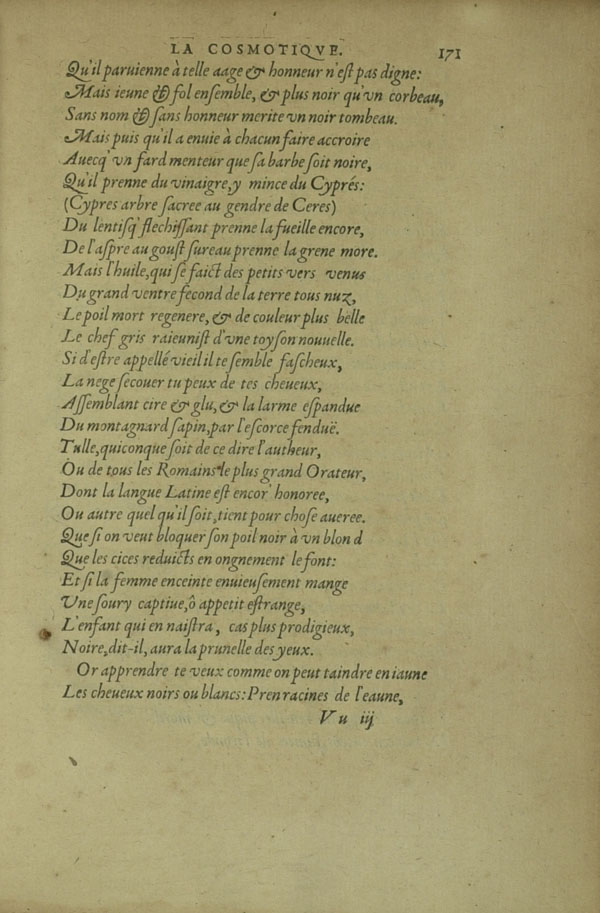 LA COSMOTIQVE. 171
Qu'il paruienne à telle aage & honneur n'est pas digne:
Mais ieune & fol ensemble, & plus noir qu'vn corbeau,
Sans nom & sans honneur merite vn noir tombeau.
Mais puis qu'il a enuie à chacun faire accroire
Auecq' vn fard menteur que sa barbe soit noire,
Qu'il prenne du vinaigre, y mince du Cyprés:
(Cypres arbre sacree au gendre de Ceres)
Du lentisq' flechissant prenne la fueille encore,
De l'aspre au goust sureau prenne la grene more.
Mais l'huile, qui se faict des petits vers venus
Du grand ventre fecond de la terre tous nuz,
Le poil mort regenere, & de couleur plus belle
Le chef gris raieunist d'vne toyson nouuelle.
Si d'estre appellé vieil il te semble fascheux,
La nege secouer tu peux de tes cheueux,
Assemblant cire & glu, & la larme espandue
Du montagnard sapin, par l'escorce fenduë.
Tulle, quiconque soit de ce dire l'autheur,
Ou de tous les Romains le plus grand Orateur,
Dont la langue Latine est encor' honoree,
Ou autre quel qu'il soit, tient pour chose aueree.
Que si on veut bloquer son poil noir à vn blond
Que les cices reduicts en ongnement le font:
Et si la femme enceinte enuieusement mange
Vne soury captiue, ô appetit estrange,
L'enfant qui en naistra, cas plus prodigieux,
Noire, dit-il, aura la prunelle des yeux.
Or apprendre te veux comme on peut taindre en iaune
Les cheueux noirs ou blancs: Pren racines de l'eaune,
Vu iij